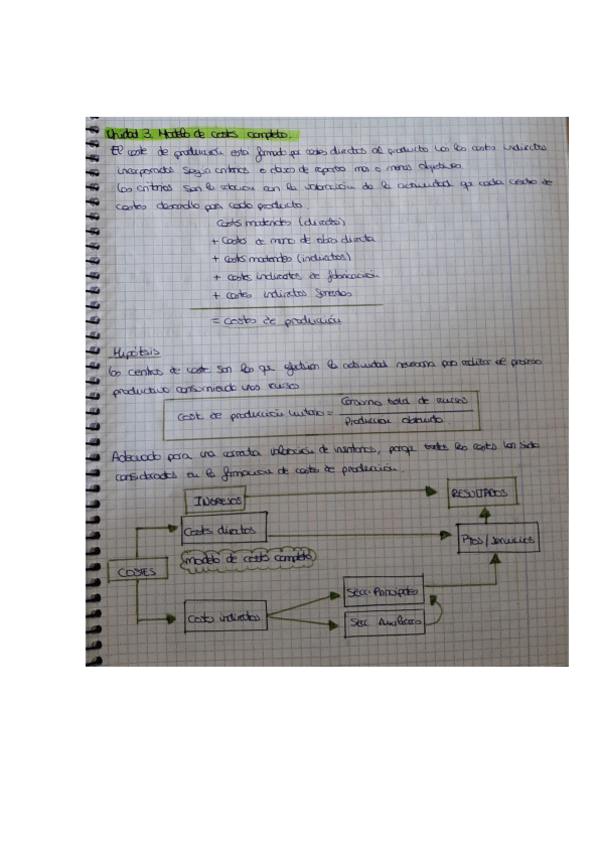 Unidad 3. Modelo de costes completo.
El coste de producción está formado por costes directos al producto con los costes indirectos
incorporados según criterios o claves de reparto más o menos objetivos.
Los criterios son la relación con la valoración de la actividad que cada centro de
costes desarrolla para cada producto.
Costes materiales (directos)
+ Costes de mano de obra directa
+ costes materiales (indirectos)
+ costes indirectos de fabricación
+ costes indirectos generales
= Costes de producción
Hipótesis
Los centros de coste son los que efectúan la actividad necesaria para realizar el proceso
productivo consumiendo unos recursos
Coste de producción unitario = Consumo total de recursos
Producción obtenida
Adecuado para una correcta valoración de inventarios, porque todos los costes han sido
considerados en la formación de costes de producción.
INGRESOS
RESULTADOS
Costes directos
Ptos/servicios
modelo de costes completo
COSTES
Secc. Principales
Costes indirectos
Secc. Auxiliares